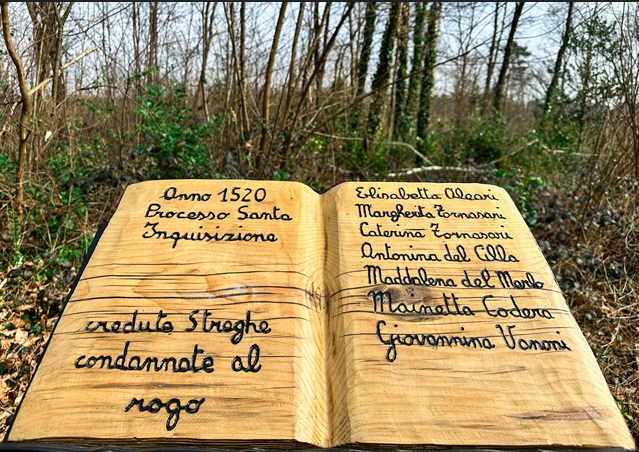 Anno 1520
Processo Santa
Inquisizione
credute Streghe
condannate al
rogo
Elisabetta Oleari
Margherta Fornasari
Caterina Fornasari
Antonina del Cilla
Maddalena del Merlo
Mainetta Codera
Giovannina Vanoni